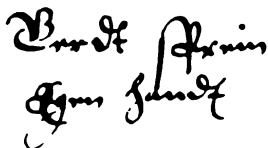 Berdt Prein
Egen handt